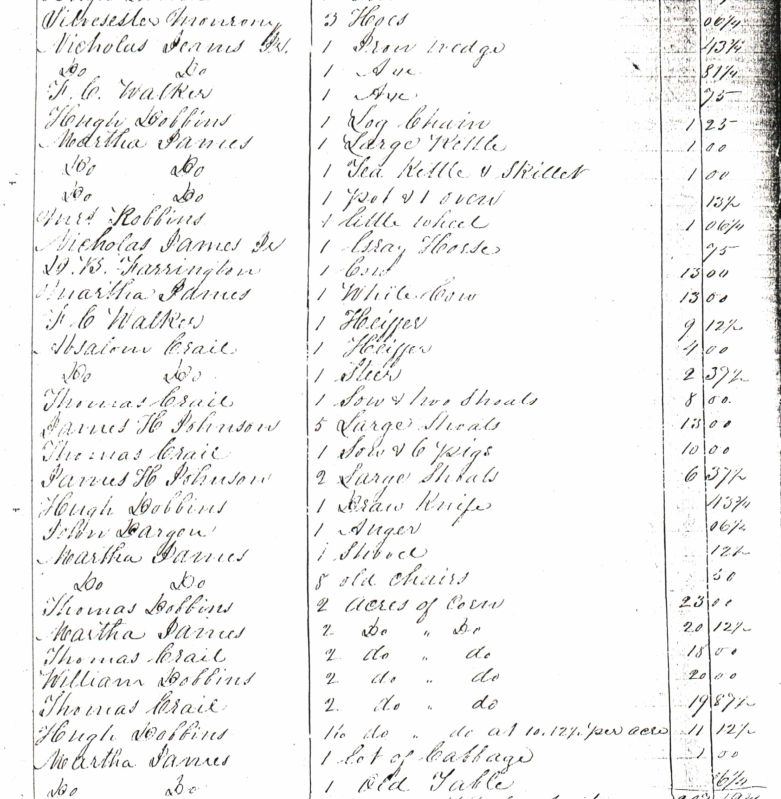 3 Hoes 06¼
Nicholas James Jr. 1 Iron wedge 43¾
Do Do 1 Axe 81¼
F. C. Walker 1 Axe 75
Hugh Dobbins 1 Log Chain 1 25
Martha James 1 Large Kettle 1 00
Do Do 1 Tea Kettle & Skillet 1 00
Do Do 1 pot & 1 oven 13½
Robbins 1 little wheel 1 06¼
Nicholas James Jr 1 Gray Horse 75
Farrington 1 Cow 13 00
Martha James 1 White Cow 13 00
F. C Walker 1 Heiffer 9 12½
Absalom Crail 1 Heiffer 4 00
Do Do 1 Steer 2 37½
Thomas Crail 1 Sow & two Shoats 8 00.
James H Johnson 5 Large Shoats 13 00
Thomas Crail 1 Sow & 6 pigs 10 00
James H Johnson 2 Large Shoats 6 37½
Hugh Dobbins 1 Draw Knife 43¾
John 1 Auger 06¼
Martha James 1 Shovel 12½
Do Do 8 old chairs 50
Thomas Dobbins 2 acres of Corn 23 00
Martha James 2 Do " Do 20 12½
Thomas Crail 2 do " do 18 00
William Dobbins 2 do " do 20 00
Thomas Crail 2 do " do 19 87½
Hugh Dobbins do " do at 10.12½ per acre 11 12½
Martha James 1 Lot of Cabbage 1 00
Do Do 1 Old Table 6¼